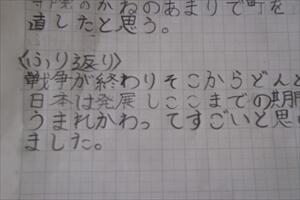 のかねのあまりで町を
直したと思う。
〈ふり返り〉
戦争が終わりそこからどんど
日本は発展しここまでの期間
うまれかわってすごいと思い
ました。